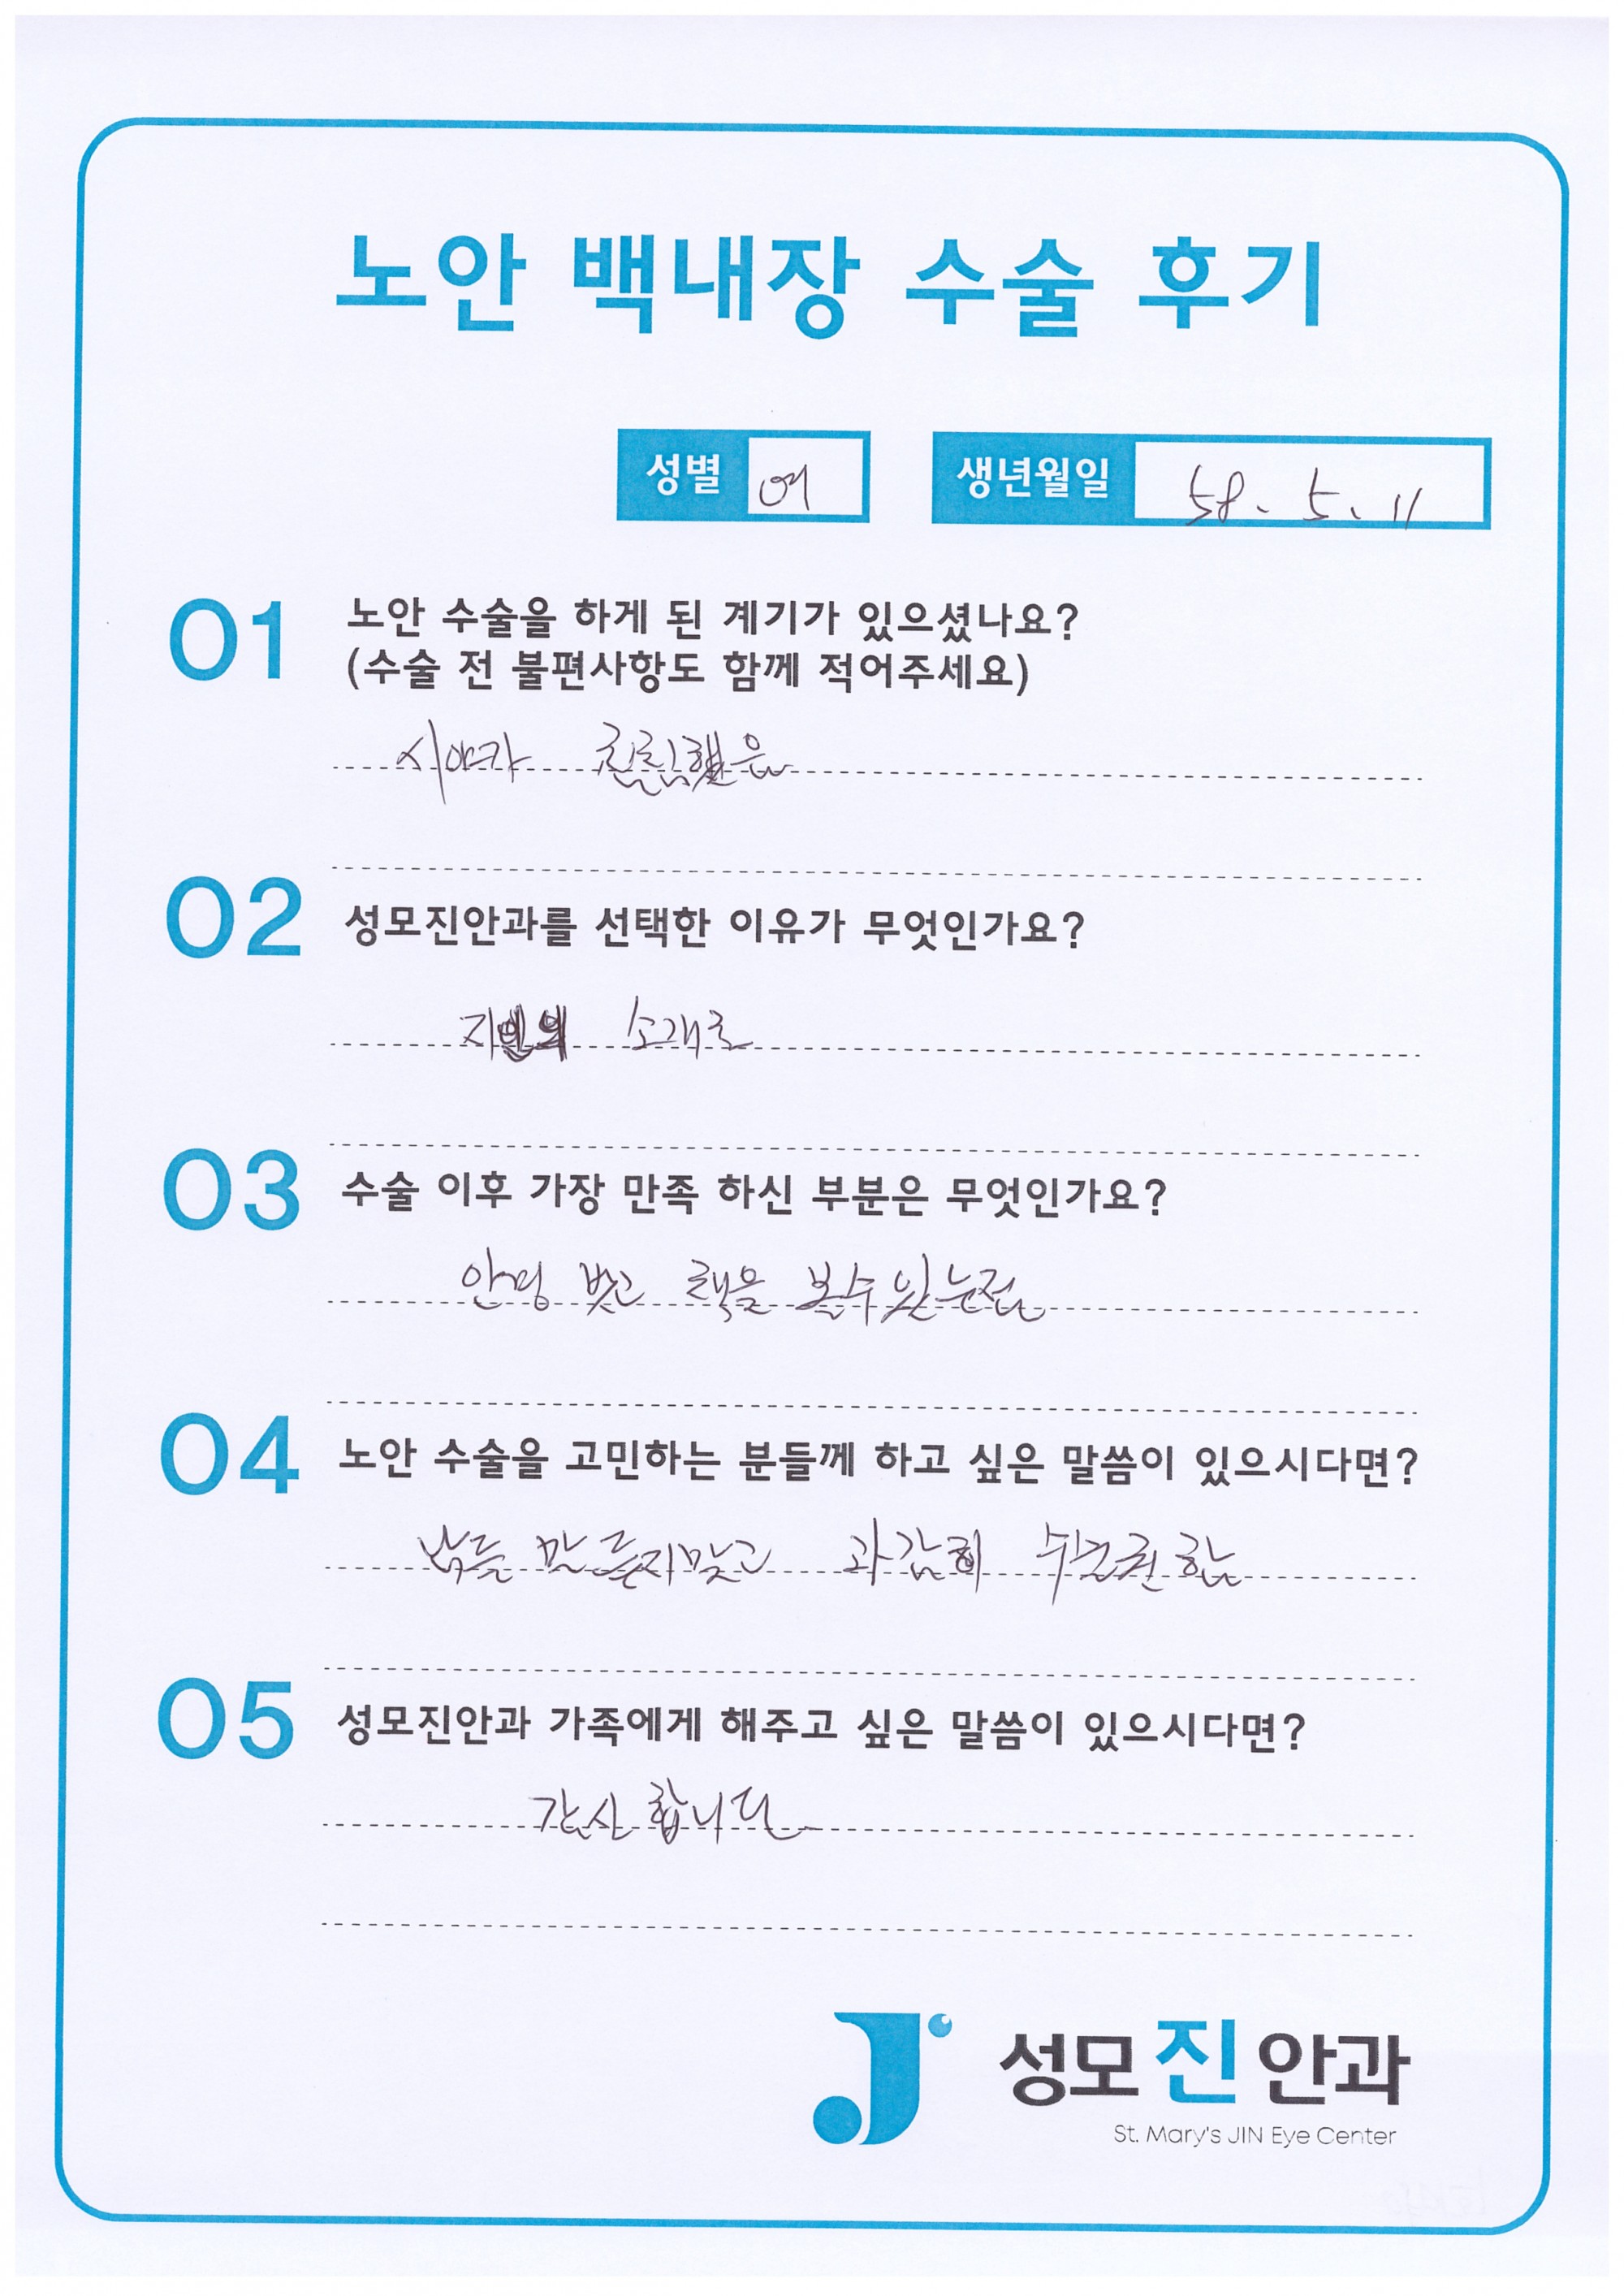 노안 백내장 수술 후기
성별 여 생년월일 58. 5. 11
01 노안 수술을 하게 된 계기가 있으셨나요?
(수술 전 불편사항도 함께 적어주세요)
시야가 흐릿했음
02 성모진안과를 선택한 이유가 무엇인가요?
지인의 소개로
03 수술 이후 가장 만족 하신 부분은 무엇인가요?
안경 벗고 책을 볼수있는점
04 노안 수술을 고민하는 분들께 하고 싶은 말씀이 있으시다면?
남들 말 듣지말고 과감히 수술권함
05 성모진안과 가족에게 해주고 싶은 말씀이 있으시다면?
감사합니다
성모진안과
St. Mary's JIN Eye Center